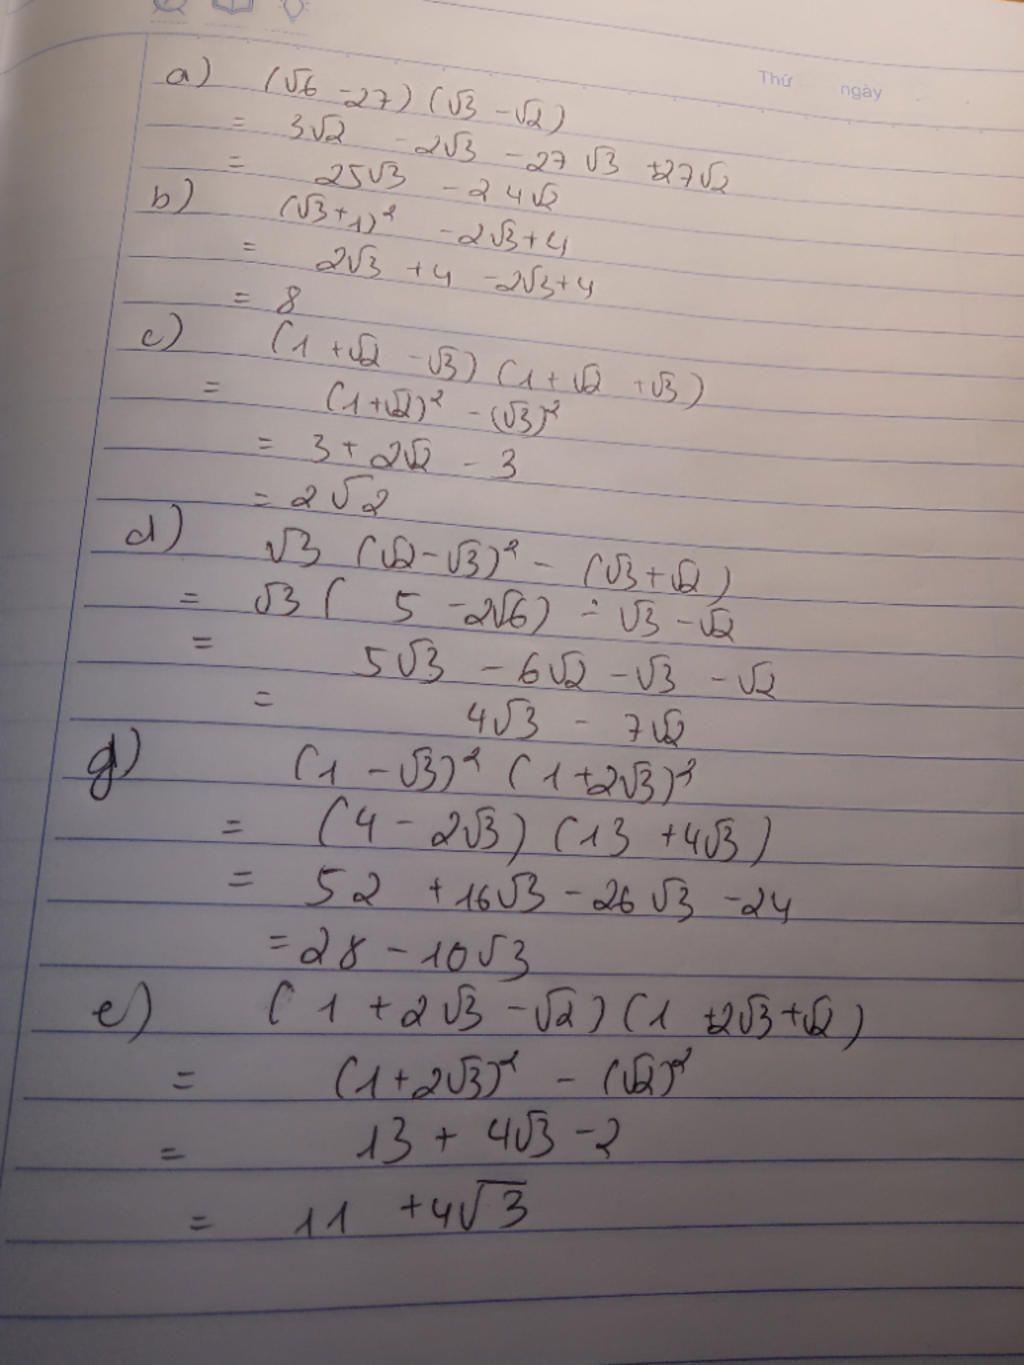 Thứ ngày
a) (√6 - 27) (√3 - √2)
= 3√2 - 2√3 - 27√3 + 27√2
= 25√3 - 24√2
b) (√3 + 1)² - 2√3 + 4
= 2√3 + 4 - 2√3 + 4
= 8
c) (1 + √2 - √3) (1 + √2 + √3)
= (1 + √2)² - (√3)²
= 3 + 2√2 - 3
= 2√2
d) √3 (√2 - √3)² - (√3 + √2)
= √3 ( 5 - 2√6) - √3 - √2
= 5√3 - 6√2 - √3 - √2
= 4√3 - 7√2
g) (1 - √3)² (1 + 2√3)²
= (4 - 2√3) (13 + 4√3)
= 52 + 16√3 - 26√3 - 24
= 28 - 10√3
e) (1 + 2√3 - √2) (1 + 2√3 + √2)
= (1 + 2√3)² - (√2)²
= 13 + 4√3 - 2
= 11 + 4√3